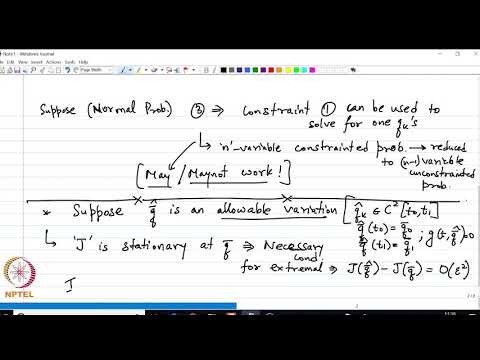 Note1 - Windows Journal
File Edit View Insert Actions Tools Help
Page Width
Suppose (Normal Prob.) ③ ⇒ constraint ① can be used to
solve for one qₖ's
↳ 'n'-variable constrainted prob. → reduced
to (n-1) variable
unconstrainted
prob.
[May / Maynot work!]
* Suppose q̂ is an allowable variation [q̂ₖ ∈ C²[t₀,t₁]
q̂(t₀) = q̄₀ ; g(t,q̂)=0
q̂(t₁) = q̄₁
↳ 'J' is stationary at q̄ ⇒ Necessary
cond.
for extremal ⇒ J(q̂) - J(q̄) = O(ε²)
I
NPTEL